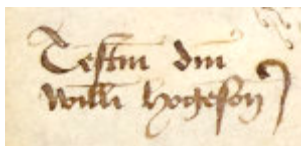 Testm dni
Willi hogeson